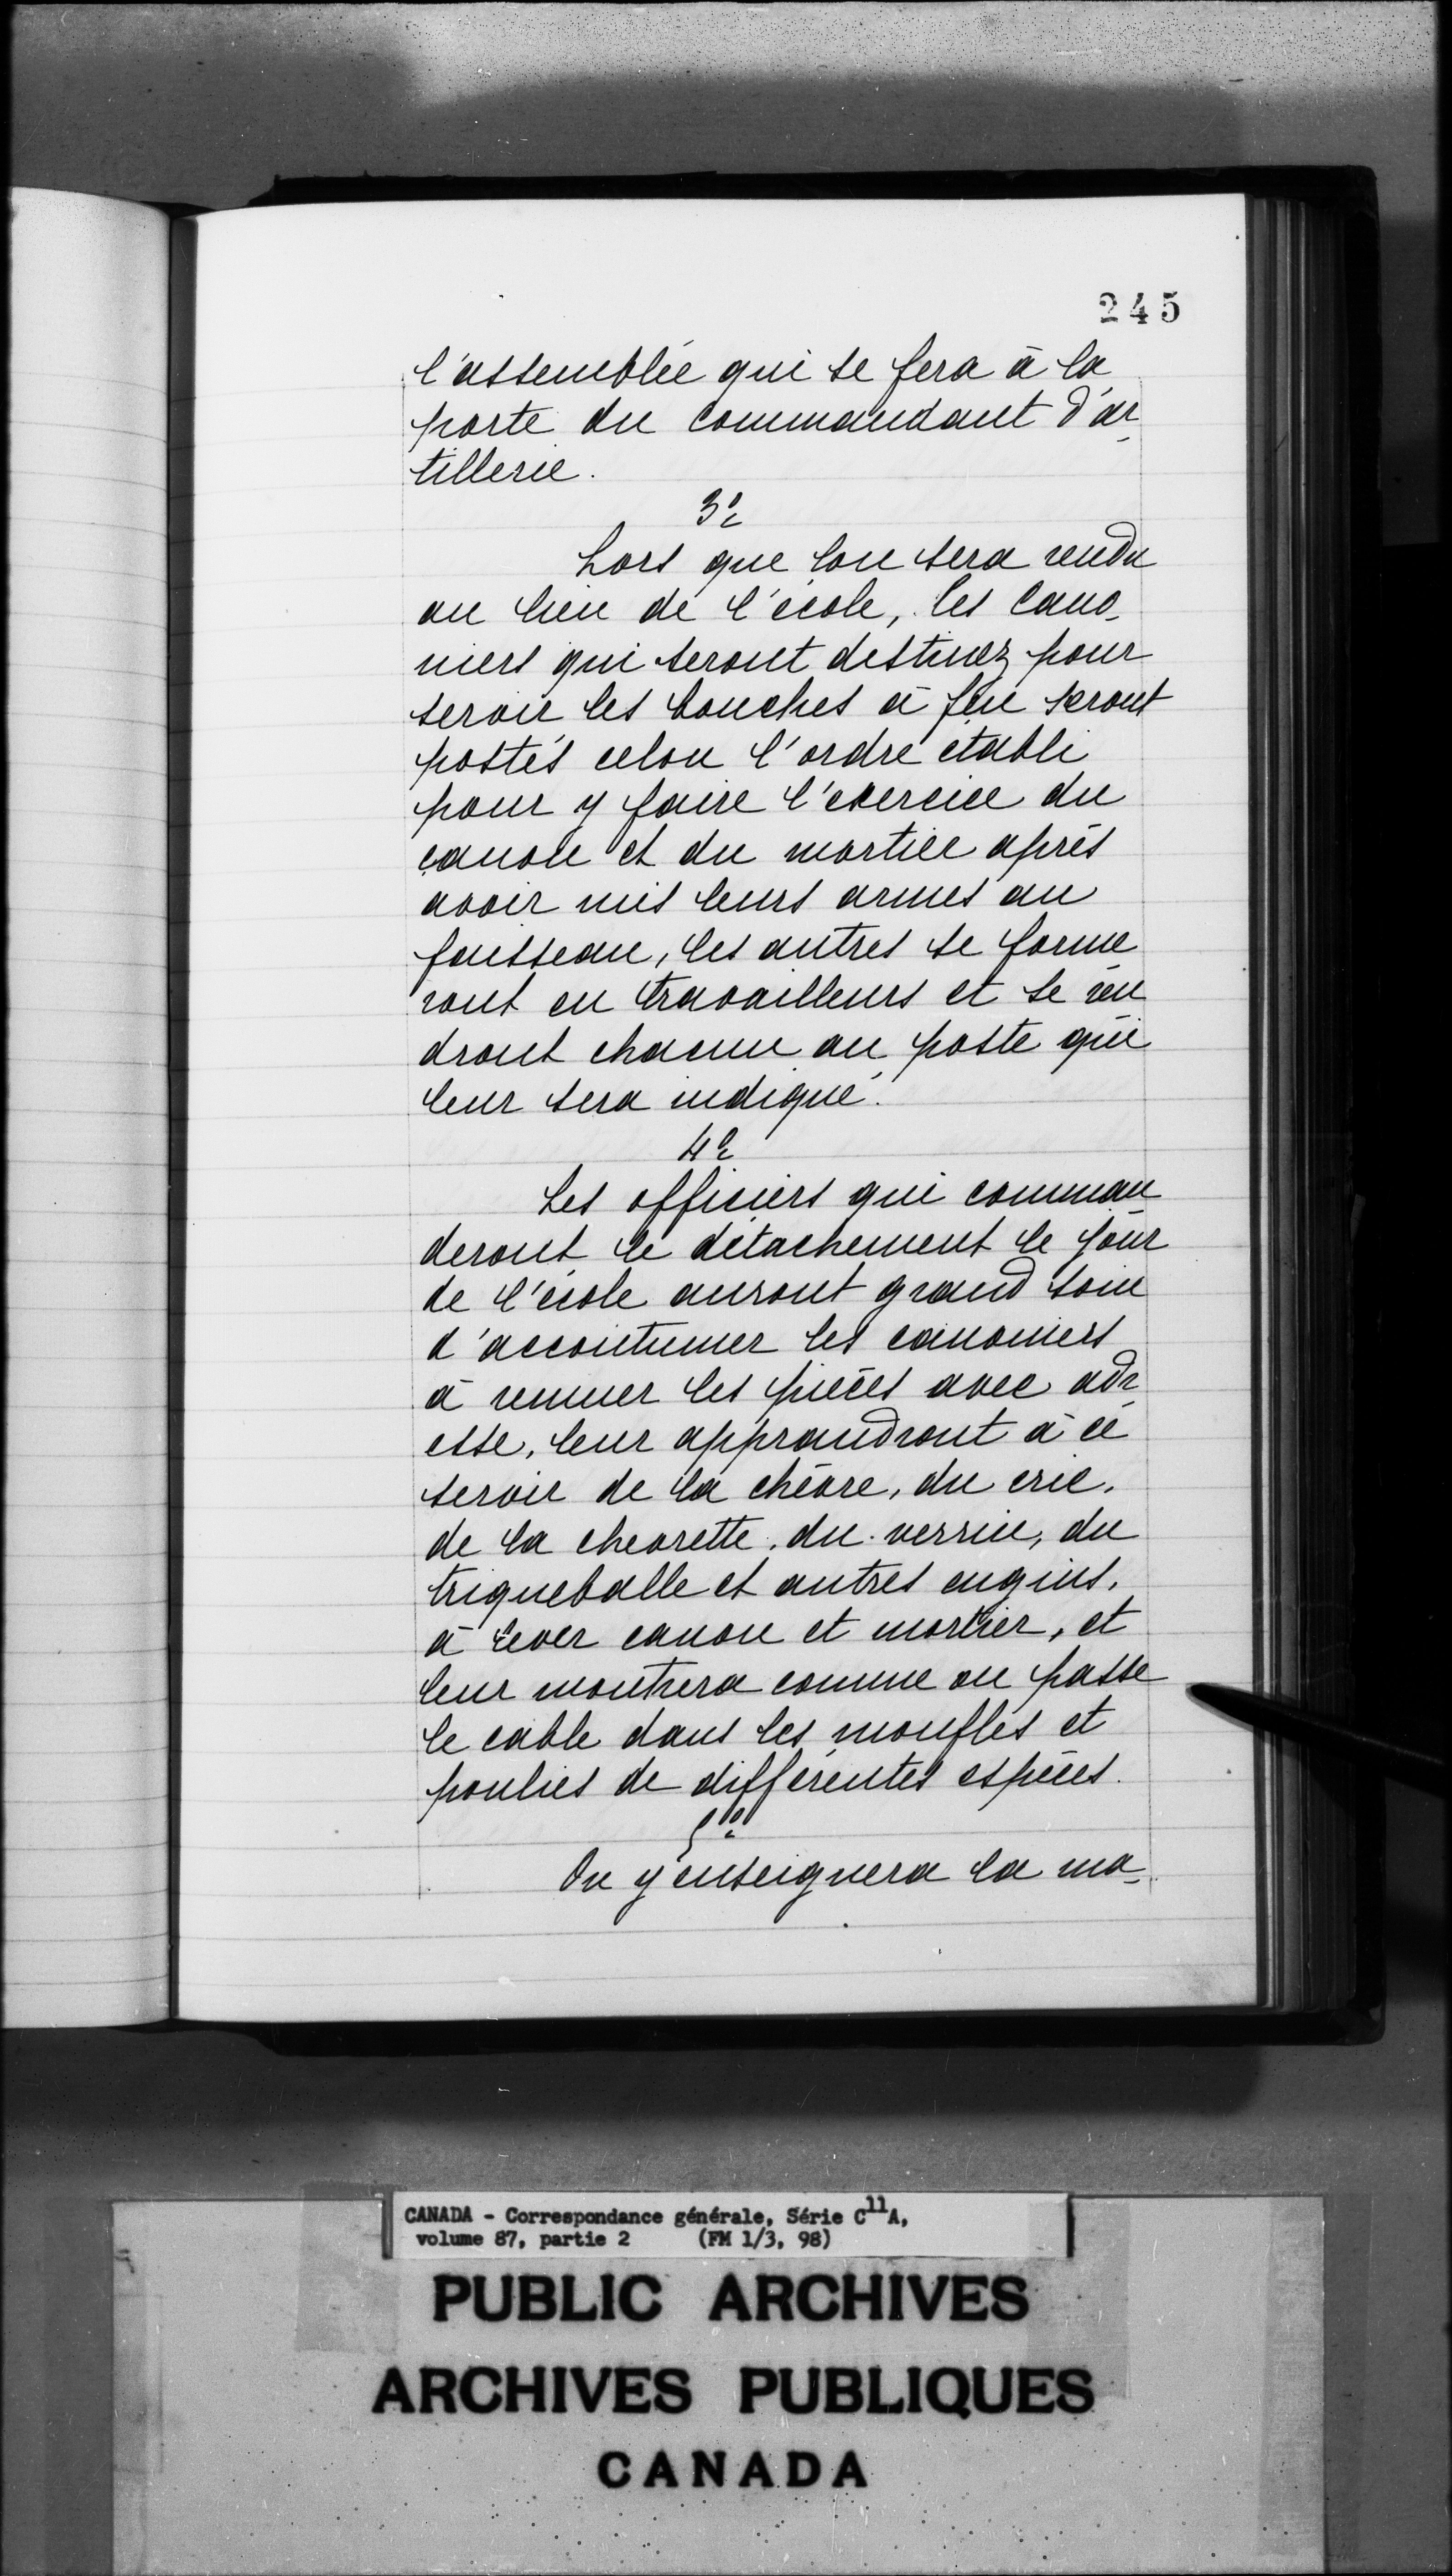 245
l'assemblée qui se fera à la
porte du commandant d'ar
tillerie.
3º
Lors que lon sera rendu
au lieu de l'école, les cano-
niers qui seront destinez pour
servir les bouches à feu seront
postés celon l'ordre établi
pour y faire l'exercice du
canon et du mortier après
avoir mis leurs armes au
faisseau, les autres se forme
ront en travailleurs et se ren
dront chacun au poste qui
leur sera indiqué.
4º
Les officiers qui comman
deront le détachement le jour
de l'école auront grand soin
d'accoutumer les canoniers
à remuer les pièces avec adr
esse, leur apprandront à ce
servir de la chèvre, du cric,
de la chevrette, du verrin, du
triqueballe et autres engins,
à lever canon et mortier, et
leur montrera comme on passe
le cable dans les moufles et
poulies de différentes espèces.
5º
On y enseignera la ma-
CANADA - Correspondance générale, Série C11A,
volume 87, partie 2 (FM 1/3, 98)
PUBLIC ARCHIVES
ARCHIVES PUBLIQUES
CANADA